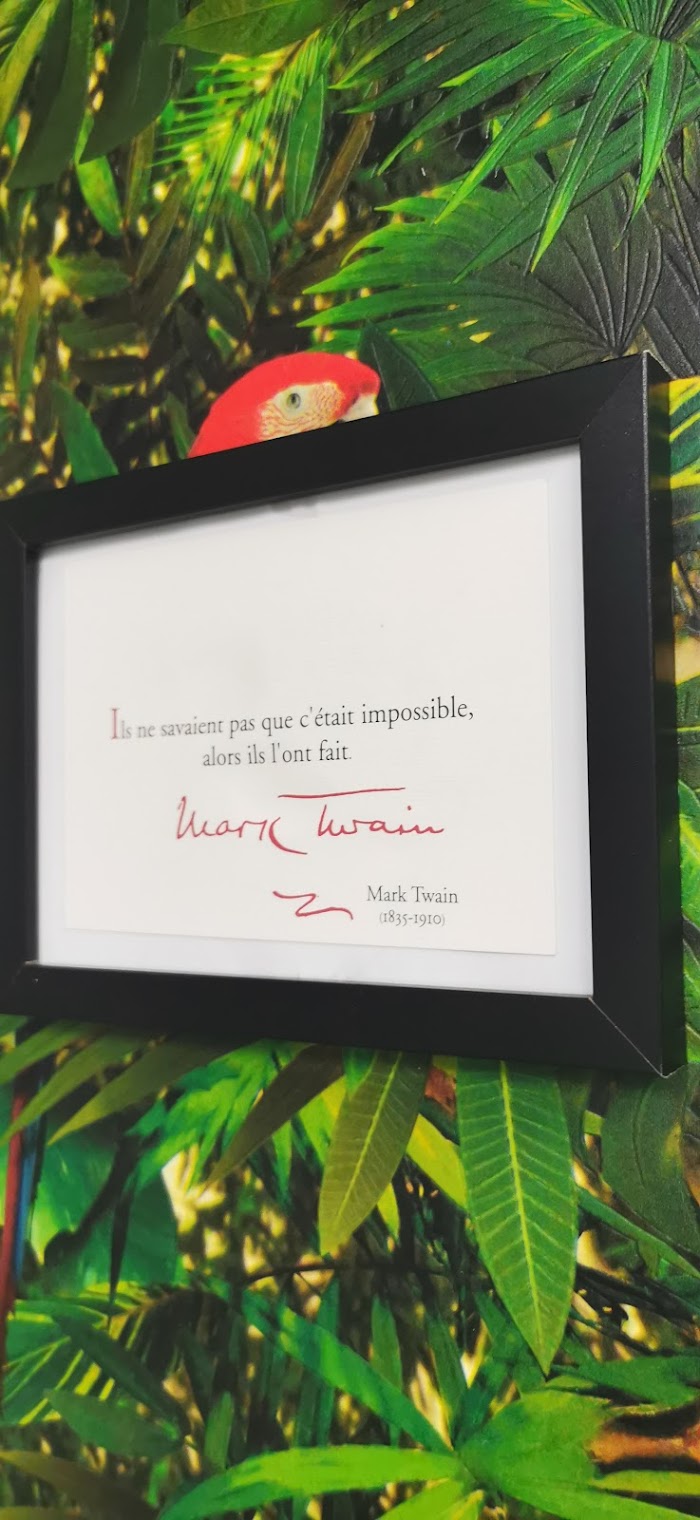 Ils ne savaient pas que c'était impossible,
alors ils l'ont fait.
Mark Twain
Mark Twain
(1835-1910)